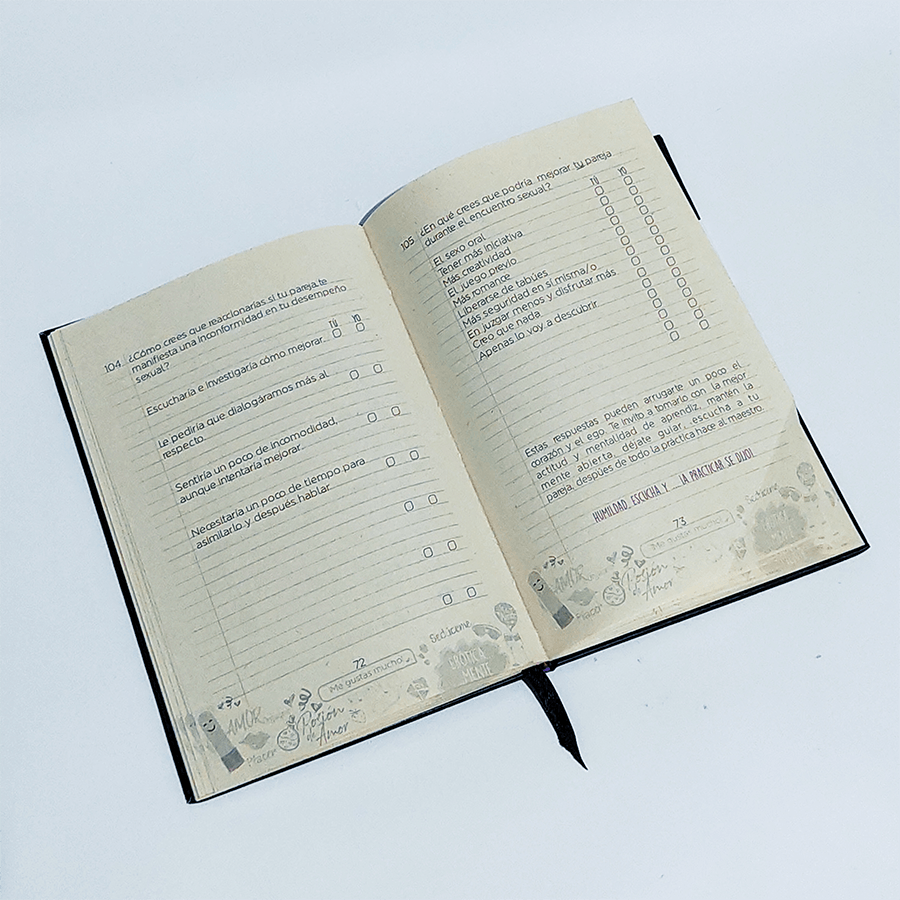 104. ¿Cómo crees que reaccionarías si tu pareja te
manifiesta una inconformidad en tu desempeño
sexual?
TÚ YO
Escucharía e investigaría cómo mejorar.
Le pediría que dialogáramos más al
respecto.
Sentiría un poco de incomodidad,
aunque intentaría mejorar.
Necesitaría un poco de tiempo para
asimilarlo y después hablar.
72
¡Me gustas mucho!
Sedúceme
AMOR
Poción
de Amor
Placer
EROTICA
MENTE
105. ¿En qué crees que podría mejorar tu pareja
durante el encuentro sexual?
TÚ YO
El sexo oral
Tener más iniciativa
Más creatividad
El juego previo
Más romance
Liberarse de tabúes
Más seguridad en sí misma/o
En juzgar menos y disfrutar más
Creo que nada
Apenas lo voy a descubrir
Estas respuestas pueden arrugarte un poco el
corazón y el ego. Te invito a tomarlo con la mejor
actitud y mentalidad de aprendiz, mantén la
mente abierta, déjate guiar, escucha a tu
pareja, después de todo la práctica hace al maestro.
HUMILDAD, ESCUCHA Y A PRACTICAR SE DIJO!
73
¡Me gustas mucho!
Sedúceme
AMOR
Poción
de Amor
Placer